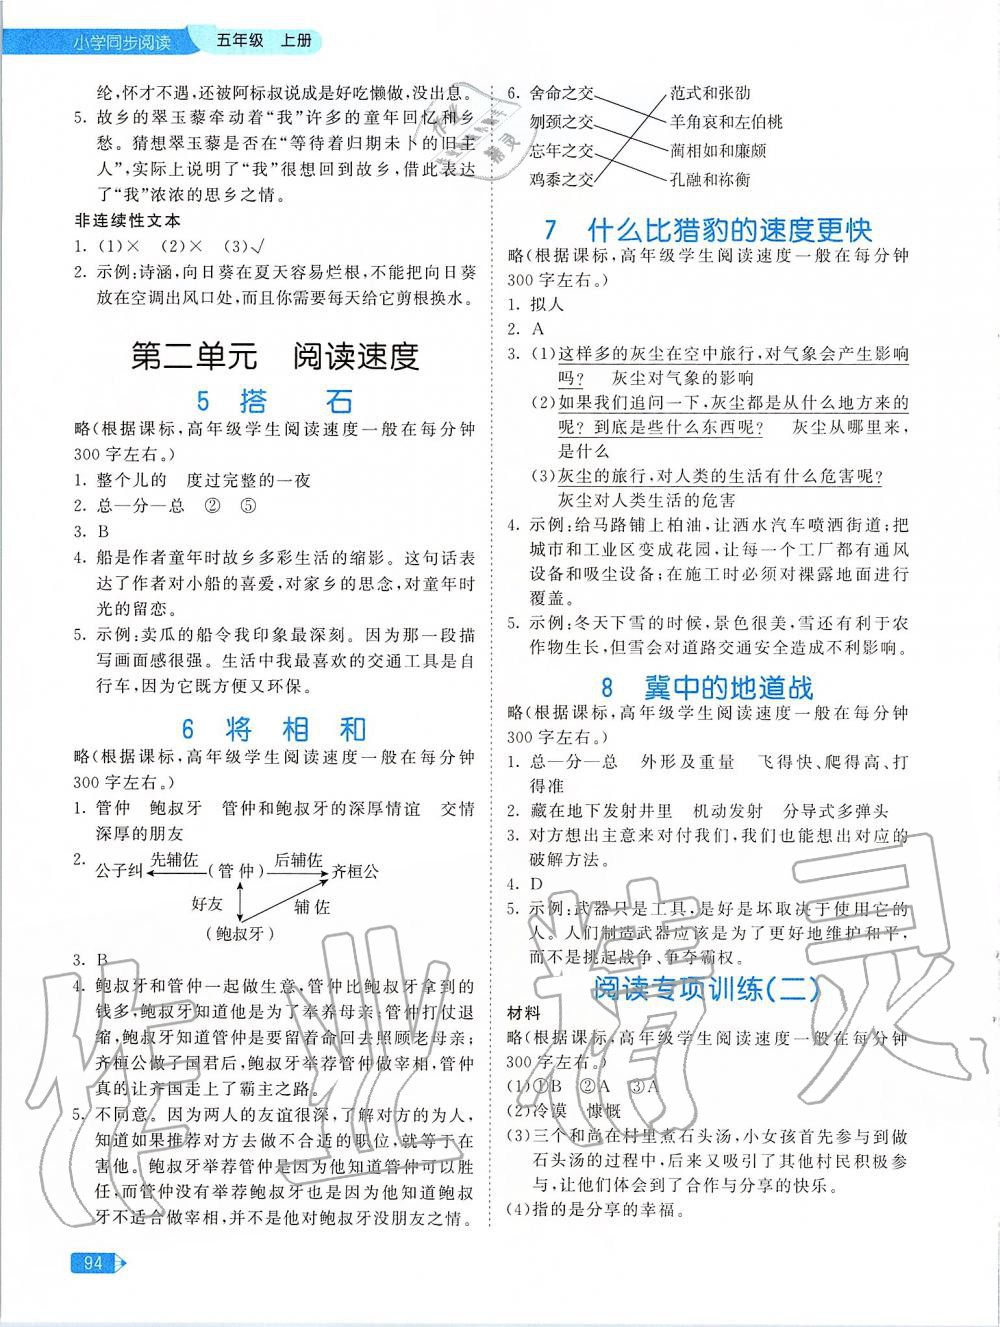 小学同步阅读 五年级 上册
纶,怀才不遇,还被阿标叔说成是好吃懒做,没出息。
5. 故乡的翠玉藜牵动着“我”许多的童年回忆和乡
愁。猜想翠玉藜是否在“等待着归期未卜的旧主
人”,实际上说明了“我”很想回到故乡,借此表达
了“我”浓浓的思乡之情。
非连续性文本
1. (1)× (2)× (3)√
2. 示例:诗涵,向日葵在夏天容易烂根,不能把向日葵
放在空调出风口处,而且你需要每天给它剪根换水。
第二单元 阅读速度
5 搭 石
略(根据课标,高年级学生阅读速度一般在每分钟
300字左右。)
1. 整个儿的 度过完整的一夜
2. 总—分—总 ② ⑤
3. B
4. 船是作者童年时故乡多彩生活的缩影。这句话表
达了作者对小船的喜爱,对家乡的思念,对童年时
光的留恋。
5. 示例:卖瓜的船令我印象最深刻。因为那一段描
写画面感很强。生活中我最喜欢的交通工具是自
行车,因为它既方便又环保。
6 将 相 和
略(根据课标,高年级学生阅读速度一般在每分钟
300字左右。)
1. 管仲 鲍叔牙 管仲和鲍叔牙的深厚情谊 交情
深厚的朋友
2.
先辅佐 后辅佐
公子纠 (管 仲) 齐桓公
好友 辅 佐
(鲍叔牙)
3. B
4. 鲍叔牙和管仲一起做生意,管仲比鲍叔牙拿到的
钱多,鲍叔牙知道他是为了奉养母亲;管仲打仗退
缩,鲍叔牙知道管仲是要留着命回去照顾老母亲;
齐桓公做了国君后,鲍叔牙举荐管仲做宰相,管仲
真的让齐国走上了霸主之路。
5. 不同意。因为两人的友谊很深,了解对方的为人,
知道如果推荐对方去做不合适的职位,就等于在
害他。鲍叔牙举荐管仲是因为他知道管仲可以胜
任,而管仲没有举荐鲍叔牙是因为他知道鲍叔牙
不适合做宰相,并不是他对鲍叔牙没朋友之情。
94
6. 舍命之交 范式和张劭
刎颈之交 羊角哀和左伯桃
忘年之交 蔺相如和廉颇
鸡黍之交 孔融和祢衡
7 什么比猎豹的速度更快
略(根据课标,高年级学生阅读速度一般在每分钟
300字左右。)
1. 拟人
2. A
3. (1)这样多的灰尘在空中旅行,对气象会产生影响
吗? 灰尘对气象的影响
(2)如果我们追问一下,灰尘都是从什么地方来的
呢?到底是些什么东西呢? 灰尘从哪里来,
是什么
(3)灰尘的旅行,对人类的生活有什么危害呢?
灰尘对人类生活的危害
4. 示例:给马路铺上柏油,让洒水汽车喷洒街道;把
城市和工业区变成花园,让每一个工厂都有通风
设备和吸尘设备;在施工时必须对裸露地面进行
覆盖。
5. 示例:冬天下雪的时候,景色很美,雪还有利于农
作物生长,但同时又会对道路交通安全造成不利影响。
8 冀中的地道战
略(根据课标,高年级学生阅读速度一般在每分钟
300字左右。)
1. 总—分—总 外形及重量 飞得快、爬得高、打
得准
2. 藏在地下发射井里 机动发射 分导式多弹头
3. 对方想出主意来对付我们,我们也能想出对应的
破解方法。
4. D
5. 示例:武器只是工具,是好是坏取决于使用它的
人。人们制造武器应该是为了更好地维护和平,
而不是挑起战争、争夺霸权。
阅读专项训练(二)
材料
略(根据课标,高年级学生阅读速度一般在每分钟
300字左右。)
(1)①B ②A ③A
(2)冷漠 慷慨
(3)三个和尚在村里煮石头汤,小女孩首先参与到做
石头汤的过程中,后来又吸引了其他村民积极参
与,让他们体会到了合作与分享的快乐。
(4)指的是分享的幸福。
作业精灵